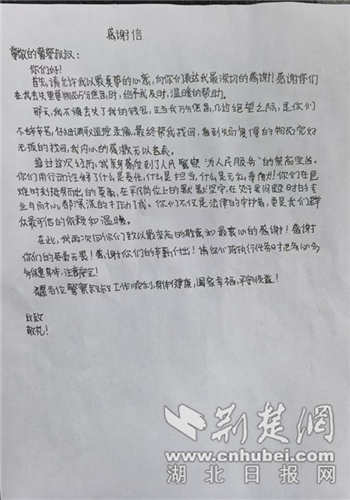 感谢信
尊敬的警察叔叔：
你们好！
首先，请允许我以最真挚的心意，向你们表达我最深切的感谢！感谢你们
在我丢失重要物品万分焦急时，给予我及时，温暖的帮助。
那天，我不慎丢失了我的钱包，正当我万分焦急，几近绝望之际，是你们
不辞辛劳，仔细调取监控走访，最终帮我找回，看到失而复得的物品完好
无损的找回，我内心的感激无以言表。
经过这次经历，我真身感受到了人民警察"为人民服务"的崇高宗旨。
你们用行动诠释了什么是责任，什么是担当，什么是无私奉献！你们在危
难时刻挺身而出的英勇，在平凡岗位上的默默坚守，在处理问题时的专
业与耐心，都深深的打动了我。你们不仅是法律的守护者，更是我们群
众最可信的依赖和温暖。
在此，我再次向你们致以最崇高的敬意和最衷心的感谢！感谢
你们的英勇无畏！感谢你们的辛勤付出！请你们在执行任务时也务必多
多保重身体，注意安全！
愿各位警察叔叔工作顺利，身体健康，阖家幸福，平安顺遂！
此致
敬礼！
荆楚网
www.cnhubei.com
湖北日报网